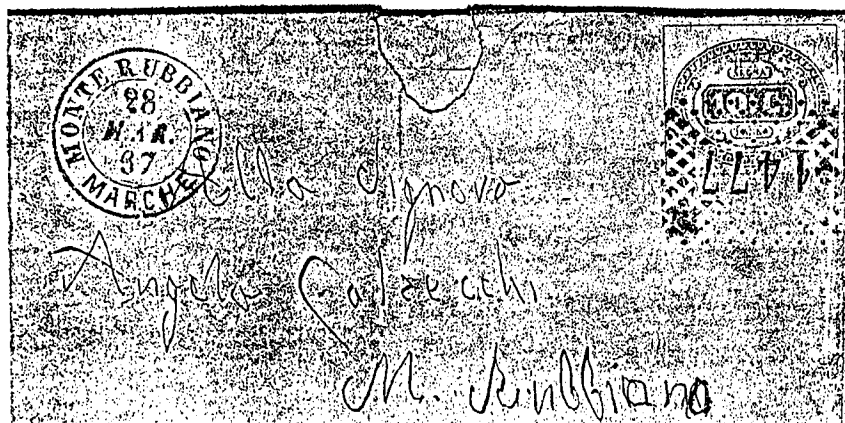 MONTE RUBBIANO
28
MAR.
67
MARCHE
1477
Alla Signora
Angela Calzecchi
M. Rubbiano